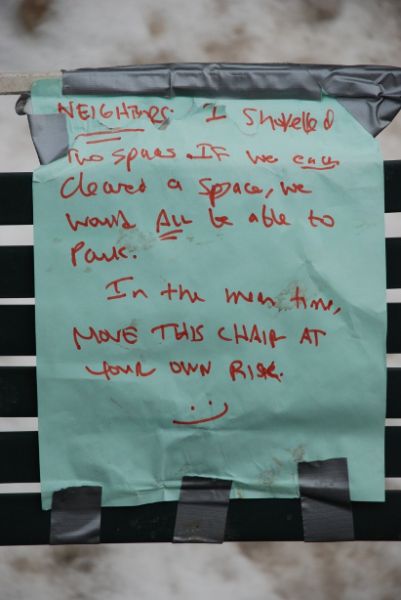 NEIGHBORS: I Shoveled
Two spaces. IF we each
Cleared a Space, we
would ALL be able to
Park.
In the mean time,
MOVE THIS CHAIR AT
YOUR OWN RISK.
:)